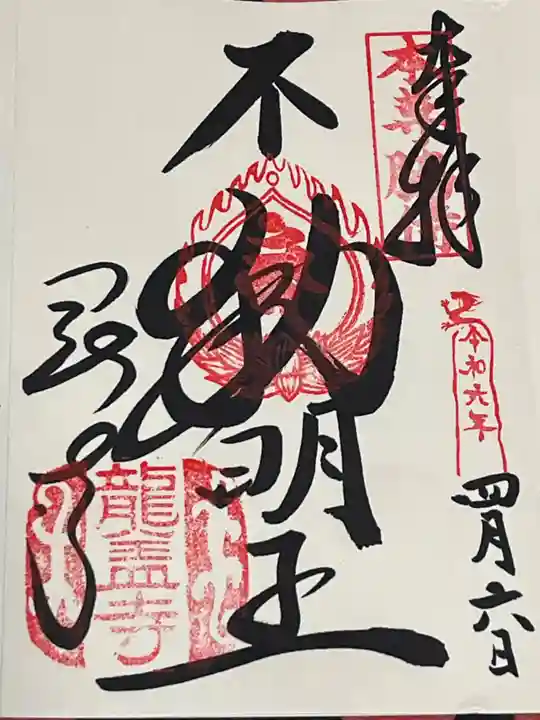 奉拝
令和六年
四月六日
不動明王
龍蓋寺